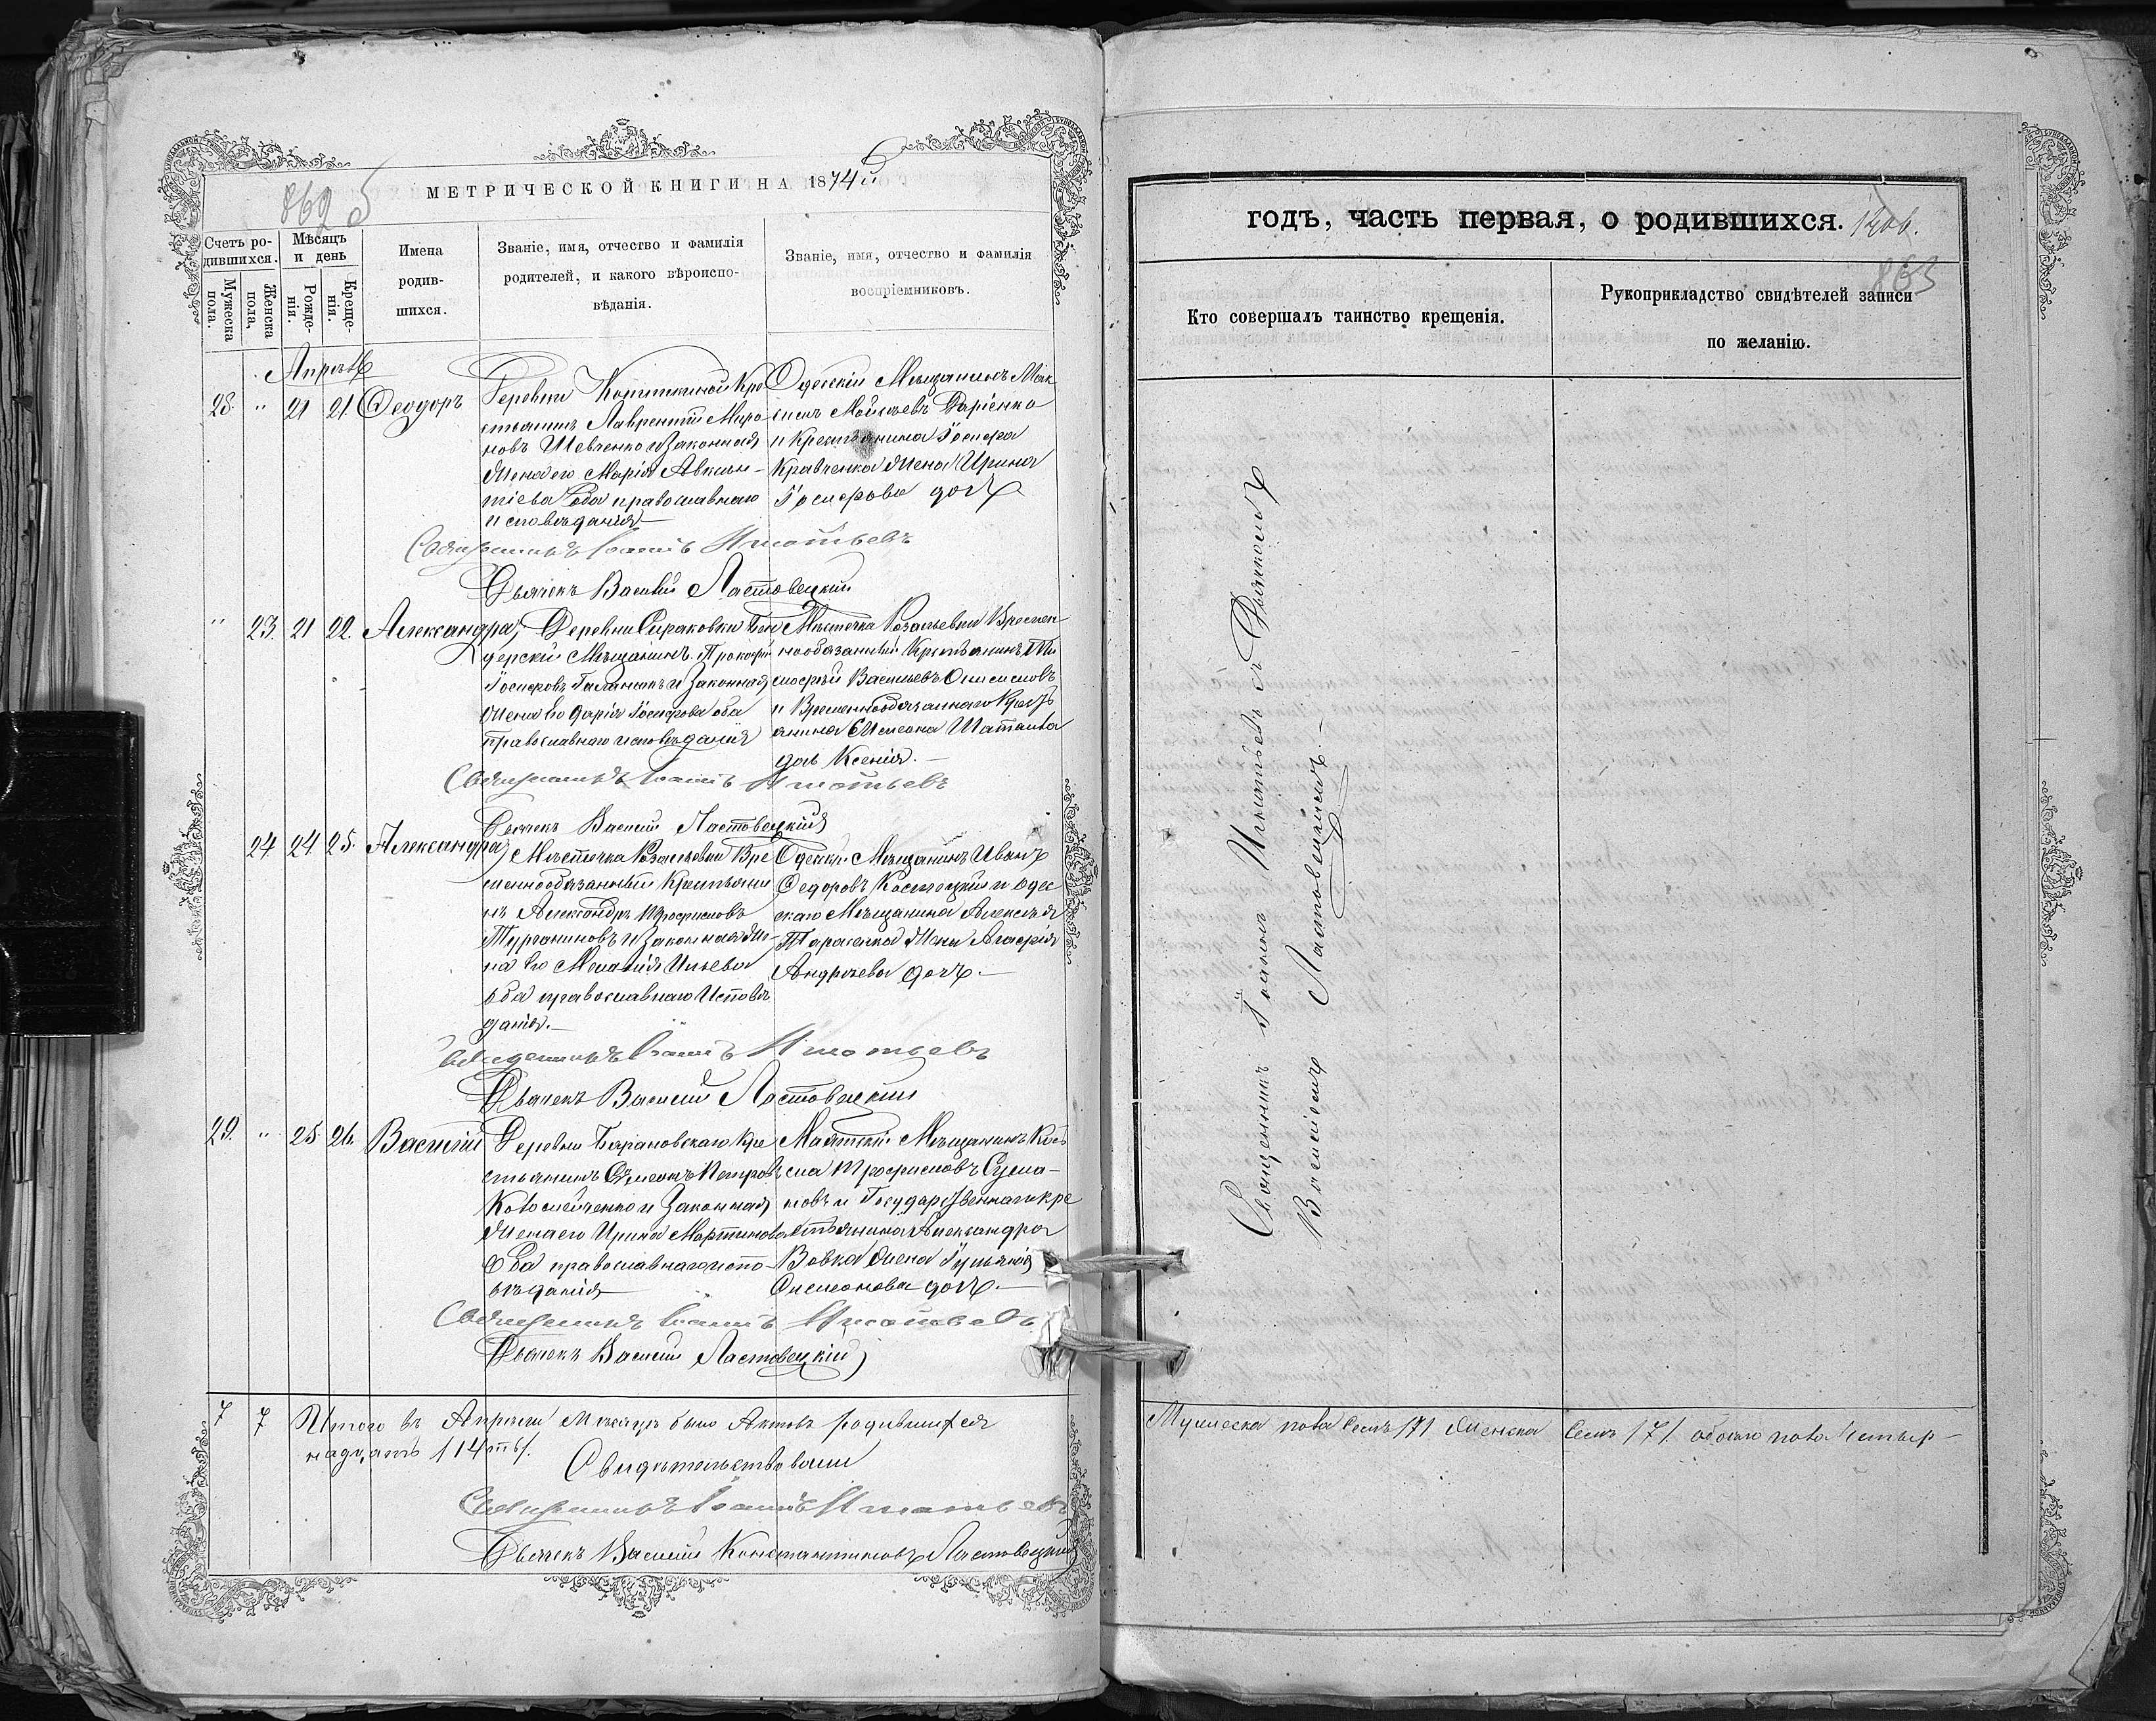 МЕТРИЧЕСКОЙ КНИГИ НА 1874й
862
Счетъ ро-
дившихся.
Мужеска
пола.
Женска
пола,
Мѣсяцъ
и день
Рожде-
нія.
Креще-
нія.
Имена
родив-
шихся.
Званіе, имя, отчество и фамилія
родителей, и какого вѣроиспо-
вѣданія.
Званіе, имя, отчество и фамилія
воспріемниковъ.
Апрѣль
28. " 21 21. Ѳеодоръ
Деревни Кре
стьянинъ Лаврентій Миро
новъ Шевченко и Законная
Жена его Марія Авксен-
тіева Оба православнаго
исповѣданія
Одесскій Мѣщанинъ Мак
симъ Моисеевъ
и Крестьянина Іосифа
Кравченка Жена Ирина
Іосифова дочь
Священникъ Іоаннъ Игнатьевъ
Дьячекъ Василій Ластовецкій
" 23. 21 22. Александра,
Деревни Сираковки Бен
дерскій Мѣщанинъ Прокофій
Іосифовъ и Законная
Жена его Дарія Іосифова оба
православнаго исповѣданія
Мѣстечка Розальевки Времен-
нообязанный Крестьянинъ Ти
мофей Васильевъ Онисимовъ
и Временнообязаннаго Крестъ
янина Симеона Шатайла
дочь Ксенія.
Священникъ Іоаннъ Игнатьевъ
Дьячекъ Василій Ластовецкій
24 24 25. Александра
Мѣстечка Розальевки Вре
меннообязанный Крестьяни
нъ Александръ Трофимовъ
и Законная Же-
на его Меланія Ильева
оба православнаго Исповѣ
данія.
Одесскій Мѣщанинъ Иванъ
Ѳедоровъ и Одес
скаго Мѣщанина Алексѣя
Тарасенка Жена Агафія
Андреева дочь.
Священникъ Іоаннъ Игнатьевъ
Дьячекъ Василій Ластовецкій
29. " 25 26. Василій
Деревни Барановскаго Кре
стьянинъ Симеонъ Петровъ
Коломейченко и Законная
Жена его Ирина Мартинова
Оба православнаго испо-
вѣданія
Маятскій Мѣщанинъ Кось
ма Трофимовъ Сума-
новъ и Государственнаго кре
стьянина Александра
Вовка Жена Гульянія
Симеонова дочь.
Священникъ Іоаннъ Игнатьевъ
Дьячекъ Василій Ластовецкій
7 7 Итого въ Апрѣли Мѣсяцѣ было Актовъ родившихся
надцать /14ть/.
Свидѣтельствовали
Священникъ Іоаннъ Игнатьевъ
Дьячекъ Василій Константиновъ Ластовецкій
годъ, часть первая, о родившихся.
863
Кто совершалъ таинство крещенія.
Рукоприкладство свидѣтелей записи
по желанію.
Священникъ Іоаннъ Игнатьевъ съ Дьячкомъ
Василіемъ Ластовецкимъ.
Мужеска пола Семь /7/ Женска Семь /7/. обоего пола Четыр-